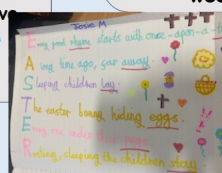 Josie M
Every good rhyme starts with once-apon-a-
A long time ago, far away.
Sleeping children lay.
The easter bunny hiding eggs.
Every one under their
Resting, sleeping the children stay